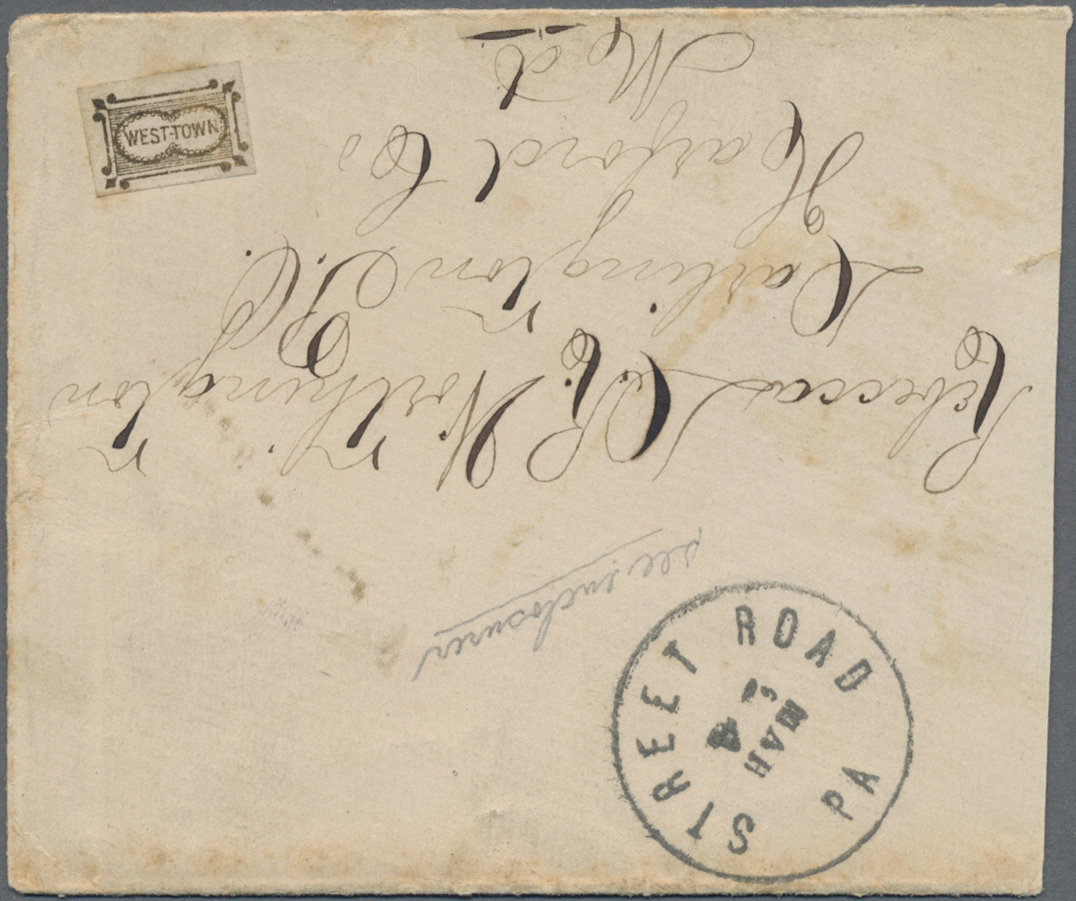 WEST-TOWN
Rebecca L. R. Worthington
Darlington P.O.
Harford Co
Md
see enclosures
STREET ROAD PA
MAR